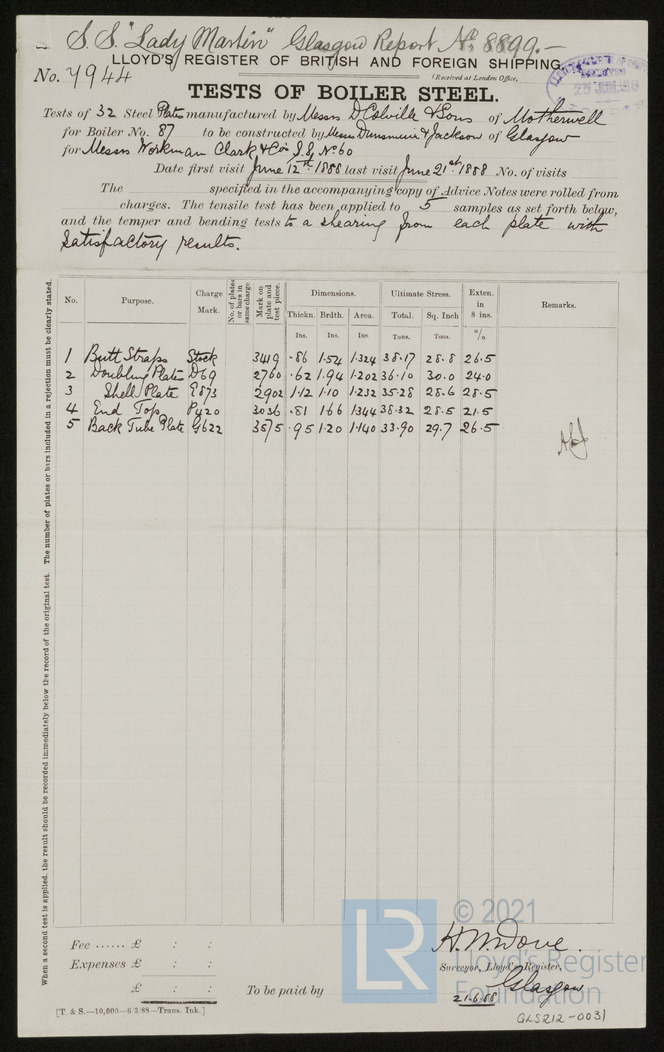 S.S. "Lady Martin" Glasgow Report No. 8899.—
LLOYD'S REGISTER OF BRITISH AND FOREIGN SHIPPING.
No. 7944 (Received at London Office,
TESTS OF BOILER STEEL.
Tests of 32 Steel Plates manufactured by Messrs D. Colville & Sons of Motherwell
for Boiler No. 87 to be constructed by Messrs Dunsmuir & Jackson of Glasgow
for Messrs Workman Clark & Co's S.S. No 60
Date first visit June 12th 1888 last visit June 21st 1888 No. of visits
The specified in the accompanying copy of Advice Notes were rolled from
charges. The tensile test has been applied to 5 samples as set forth below,
and the temper and bending tests to a shearing from each plate with
satisfactory results.
When a second test is applied, the result should be recorded immediately below the record of the original test. The number of plates or bars included in a rejection must be clearly stated.
No. Purpose. Charge Mark. No. of plates or bars in same charge Mark on plate and test piece. Dimensions. Ultimate Stress. Exten. in 8 ins. Remarks.
Thickn. Brdth. Area. Total. Sq. Inch
Ins. Ins. Ins. Tons. Tons. %
1 Butt Straps Stock 3419 .86 1.54 1.324 38.17 28.8 26.5
2 Doubling Plates D69 2760 .62 1.94 1.202 36.10 30.0 24.0
3 Shell Plate E873 2902 1.12 1.10 1.232 35.28 28.6 28.5
4 End Top P420 3036 .81 1.66 1.344 38.32 28.5 21.5
5 Back Tube Plate G622 3575 .95 1.20 1.140 33.90 29.7 26.5
Fee ...... £ : :
Expenses £ : :
£ : :
To be paid by
H. M. Dove.
Surveyor, Lloyd's Register,
Glasgow
21.6.88
[T. & S.—10,000—6/3/88—Trans. Ink.]
GLS212-0031
LR
© 2021
Lloyd's Register
Foundation